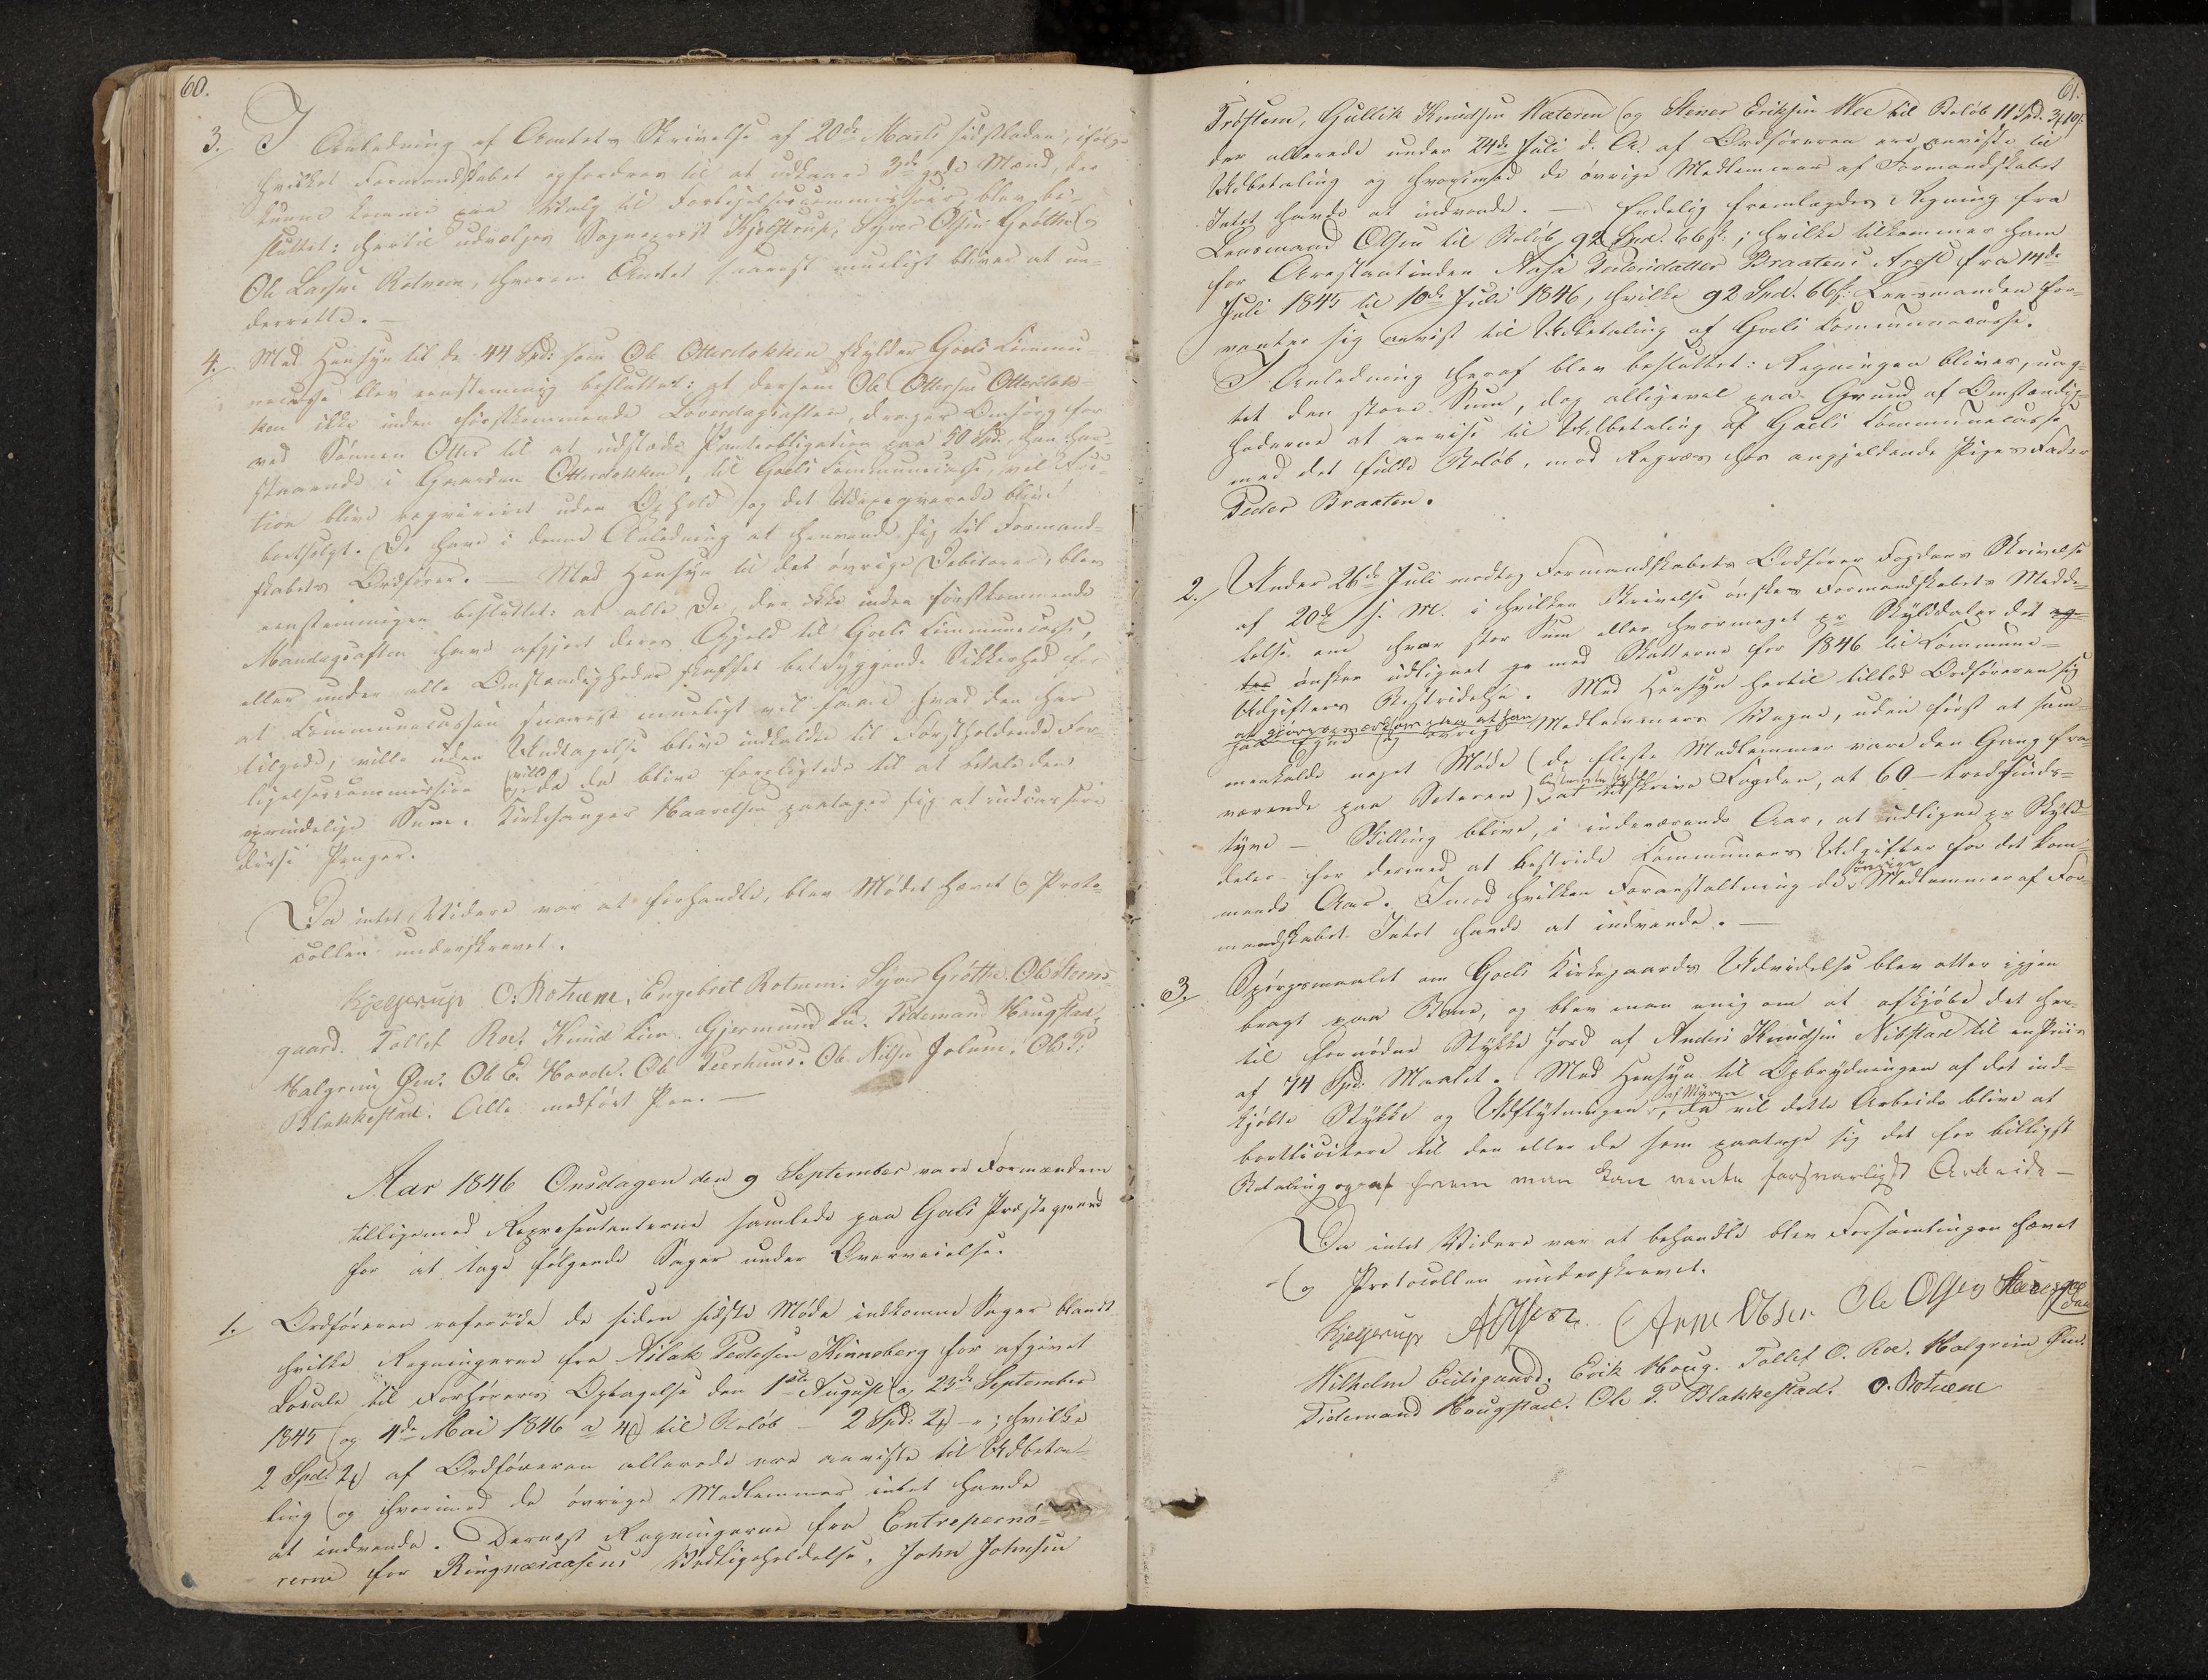 60.
3. I Anledning af Amtets Skrivelse af 20de Marts sidstleden, ifølge
hvilket Formandskabet opfordres til at udkaare 3de gode Mænd, der
kunne komme paa Valg til Forligelsescommissair, blev be-
sluttet: hertil udvælges Sognepræst Kjelstrup, Syver Olsen Grøtthe og
Ole Larsen Rotneim, hvorom Amtet snarest mueligt bliver at un-
derrette. —
4. Med Hensyn til de 44 Spd: som Ole Ottersløkken skylder Goels Commu-
necasse blev eenstemmig besluttet: at dersom Ole Ottersen Ottersløk-
ken ikke inden førstkommende Løverdagsaften, drager Omsorg for
ved Sønnen Otter til at udstede Panteobligation paa 50 Spd., han hav
staaende i Gaarden Ottersløkken, til Goels Communecasse, vil Exe-
tion blive reqvireret uden Ophold og det Udexeqverede blive
bortsolgt. De have i denne Anledning at henvende sig til Formand-
skabets Ordfører. — Med Hensyn til det øvrige Debitorer, blev
eenstemmigen besluttet: at alle De, der ikke inden førstkommende
Mandagsaften have afgjort deres Gjeld til Goels Communecasse,
eller under alle Omstændigheder skaffet betryggende Sikkerhed for
at Communecassen snarest mueligt vil faae hvad den har
tilgode, ville uden Undtagelse blive indkaldte til Forstholdende For-
ligelsescommission og ville da blive forpligtede til at betale den
oprindelige Sum. Kirkesanger Haavelsen paatager sig at indcassere
disse Penger.
Da intet Videre var at forhandle, blev Mødet hævet og Proto-
collen underskrevet.
Kjelstrup O. Rotneim, Engebret Rotneim. Syver Grøthe. Ole Steens-
gaard. Tollef Roe. Knud Lien. Gjermund Lii. Tidemand Hougstad,
Halgrim Øen. Ole E. Hovde. Ole Teerhuus. Ole Nilsen Jolum. Ole T:
Blakkestad. Alle medført Pen. —
Aar 1846 Onsdagen den 9 September vare Formændene
tilligemed Repræsentanterne samlede paa Goels Præstegaard
for at tage følgende Sager under Overveielse.
1. Ordføreren refererede de siden sidste Møde indkomne Sager blandt
hvilke Regningerne fra Aslak Pedersen Kinneberg for afgivet
Locale til Forhørers Optagelse den 1ste August og 23de September
1845 og 4de Mai 1846 a 4 til Beløb 2 Spd: 2 — " ; hvilke
2 Spd. 2 af Ordføreren allerede ere anviste til Udbeta-
ling og hvorimod de øvrige Medlemmer intet havde
at indvende. Dernæst Regningerne fra Entrepernø-
rerne for Ringnæsaasens Vedligeholdelse, John Johnsen
61.
Trøstem, Gullik Knudsen Næteren og Stener Eriksen Wee til Beløb 11 Spd. 3
der allerede under 24de Juli d. A. af Ordføreren ere anviste til
Udbetaling og hvorimod de øvrige Medlemmer af Formandskabet
Intet havde at indvende. — Endelig fremlagdes Regning fra
Lensmand Olsen til Beløb 92 Spd. 66 s; hvilke tilkommer ham
for Arrestantinden Aasa Pedersdatter Braatens Arrest fra 14de
Juli 1845 til 10de Juli 1846, hvilke 92 Spd. 66 s. Lensmanden for-
venter sig anvist til Udbetaling af Goels Communecasse.
I Anledning heraf blev besluttet: Regningen bliver, uag-
tet den store Sum, dog alligevel paa Grund af Omstændig-
hederne at anvise til Udbetaling af Goels Communecasse
med det fulde Beløb, mod Regres hos angjeldende Piges Fader
Peder Braaten.
2. Under 26de Juli modtog Formandskabets Ordfører Fogdens Skrivelse
af 20de s. M. i hvilken Skrivelse ønskes Formandskabets Medde-
lelse om hvor stor Sum eller hvormeget pr Skylddaler det
ønskes udlignet med Skatterne for 1846 til Commune-
Udgifters Bestridelse. Med Hensyn hertil tillod Ordføreren sig
at gjøre opmærksom paa at han
paa Egne og øvrige Medlemmers Vegne, uden først at sam-
menkalde noget Møde (de fleste Medlemmer vare den Gang fra-
værende paa Seteren) at tilskrive Fogden, at 60 — tredsinds-
tyve — Skilling blive, i indeværende Aar, at udligne pr Skyld-
daler for dermed at bestride Communens Udgifter for det kom-
mende Aar. Imod hvilken Foranstaltning de øvrige Medlemmer af For-
mandskabet Intet havde at indvende. —
3. Spørgsmaalet om Goels Kirkegaards Udvidelse blev atter igjen
bragt paa Bane, og blev man enig om at afkjøbe det her-
til fornødne Stykke Jord af Anders Knudsen Nibstad til en Priis
af 74 Spd: Maalet. Med Hensyn til Opbrydningen af det ind-
kjøbte Stykke og Udflytningen af Myren, da vil dette Arbeide blive at
bortlicitere til den eller de som paatage sig det for billigst
Betaling og af hvem man kan vente forsvarligst Arbeide —
Da intet Videre var at behandle blev Forsamlingen hævet
og Protocollen underskrevet.
Kjelstrup A Olsen. Arne Olsen Ole Olsen
Wilhelm Eidsgaard. Erik Houg. Tollef O. Roe. Halgrim Øen.
Tidemand Hougstad. Ole T. Blakkestad. O. Rotneim